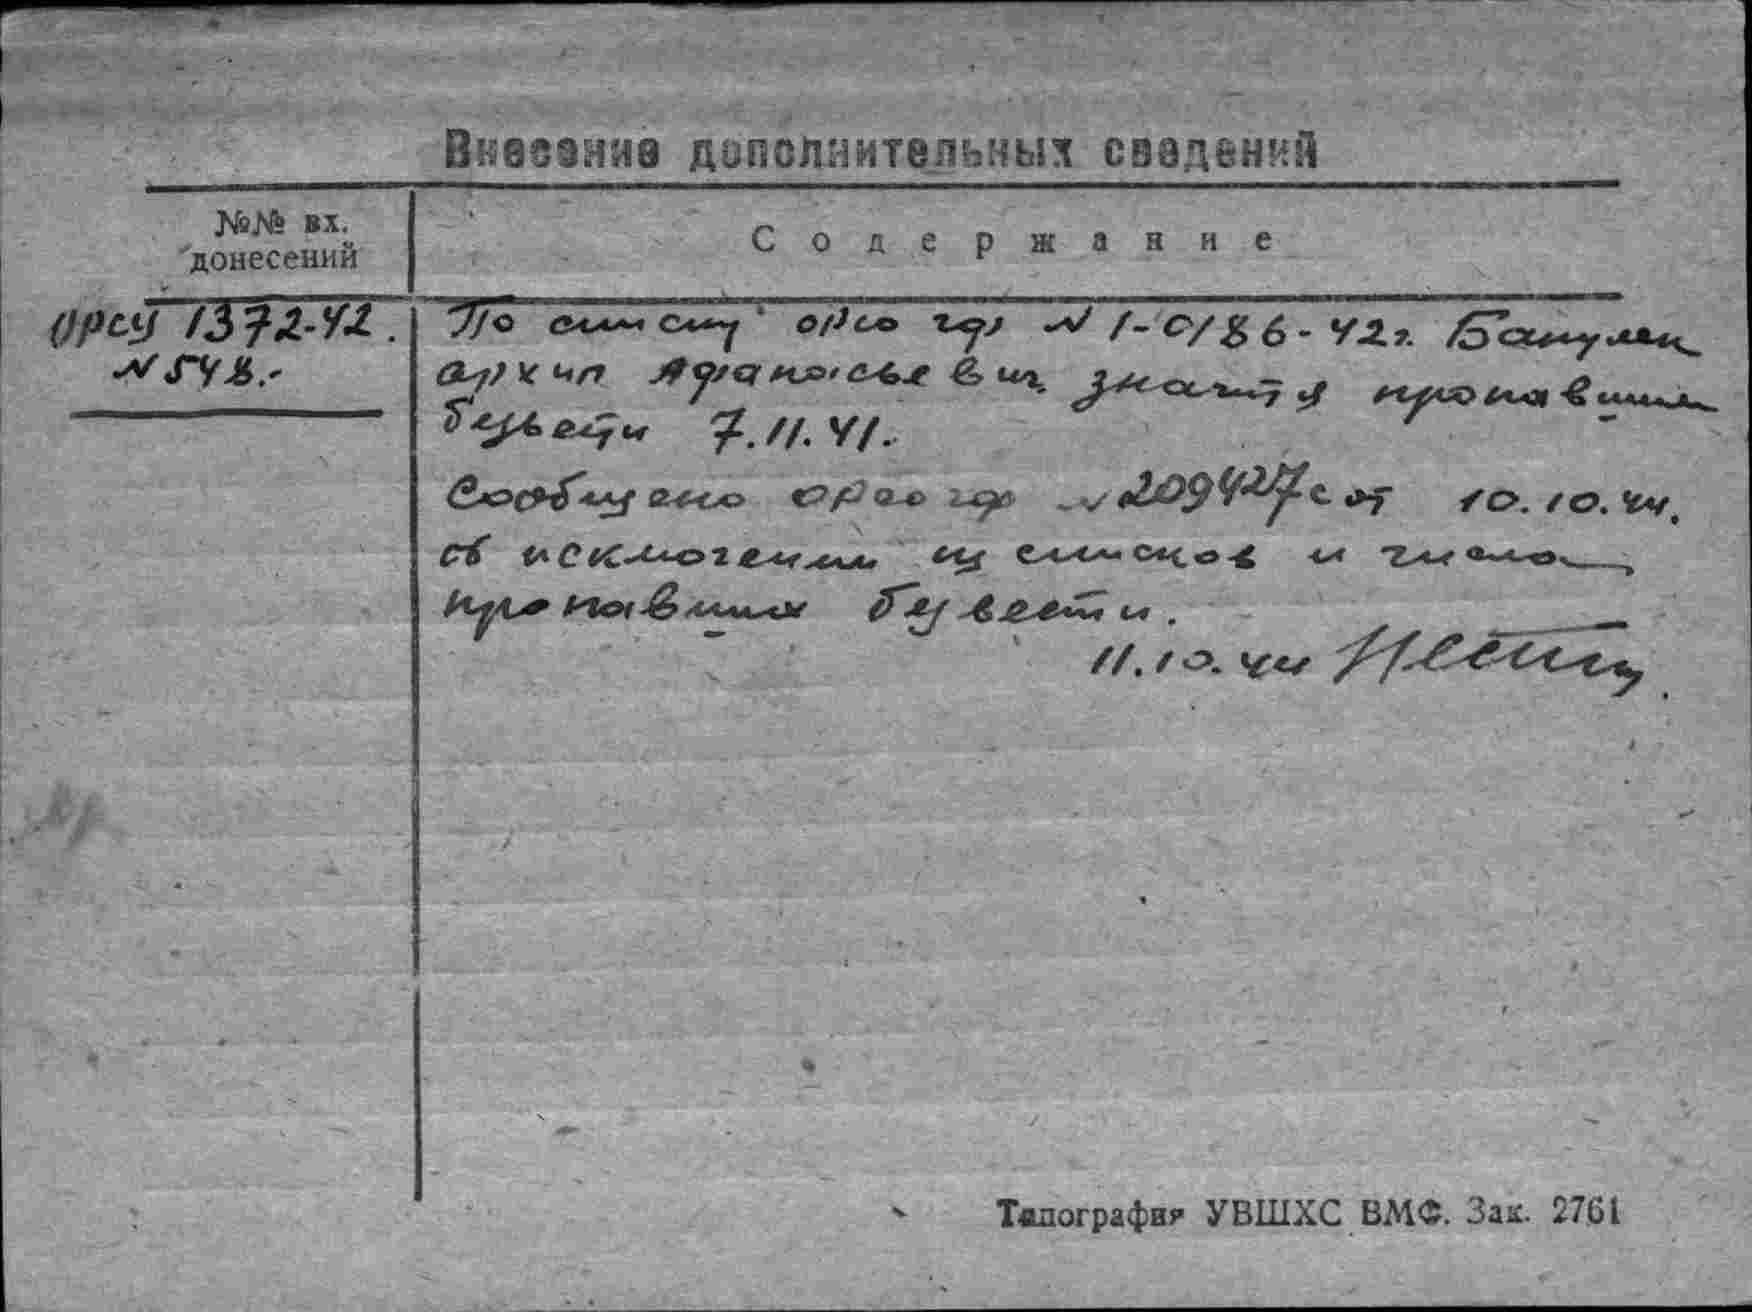 Внесение дополнительных сведений
№№ вх.
донесений
Содержание
ОРСУ 1372-42.
N 548.-
По списку орсо гф N 1-0186-42г.
Архип Афанасьевич значится пропавшим
безвести 7.11.41.
Сообщено орсо гф N 209427с от 10.10.44.
об исключении из списков и числа
пропавших безвести.
11.10.44
Типография УВШХС ВМФ. Зак. 2761